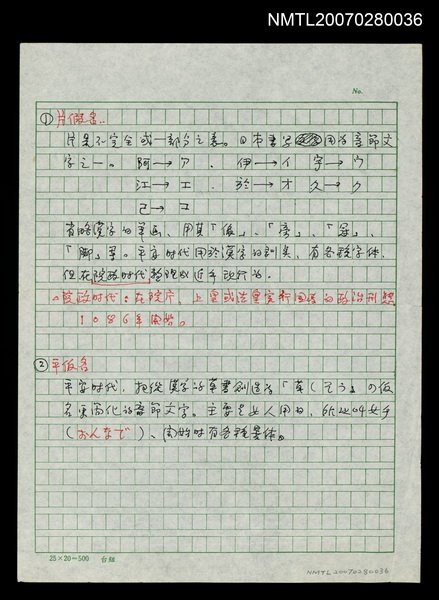 NMTL20070280036
No.
① 片假名..
片是不完全或一部分之意。日本書写 用為音節文
字之一。阿→ア. 伊→イ 宇→ウ
江→エ. 於→オ 久→ク
己→コ
省略漢字的筆画、用其「偏」、「旁」、「冠」、
「脚」等。平安时代用於漢字的訓矣、有各種字体、
但在院政时代整理成近乎现行为.
院政时代:在院庁、上皇或法皇實行国政的政治形態
1086年開始。
② 平仮名
平安时代、把從漢字的草書創造为「草(そう)」の仮
名更简化的音節文字。主要是女人用的、所以叫女手
(おんなで)、開始时有各種異体。
25×20=500 台組
NMTL20070280036